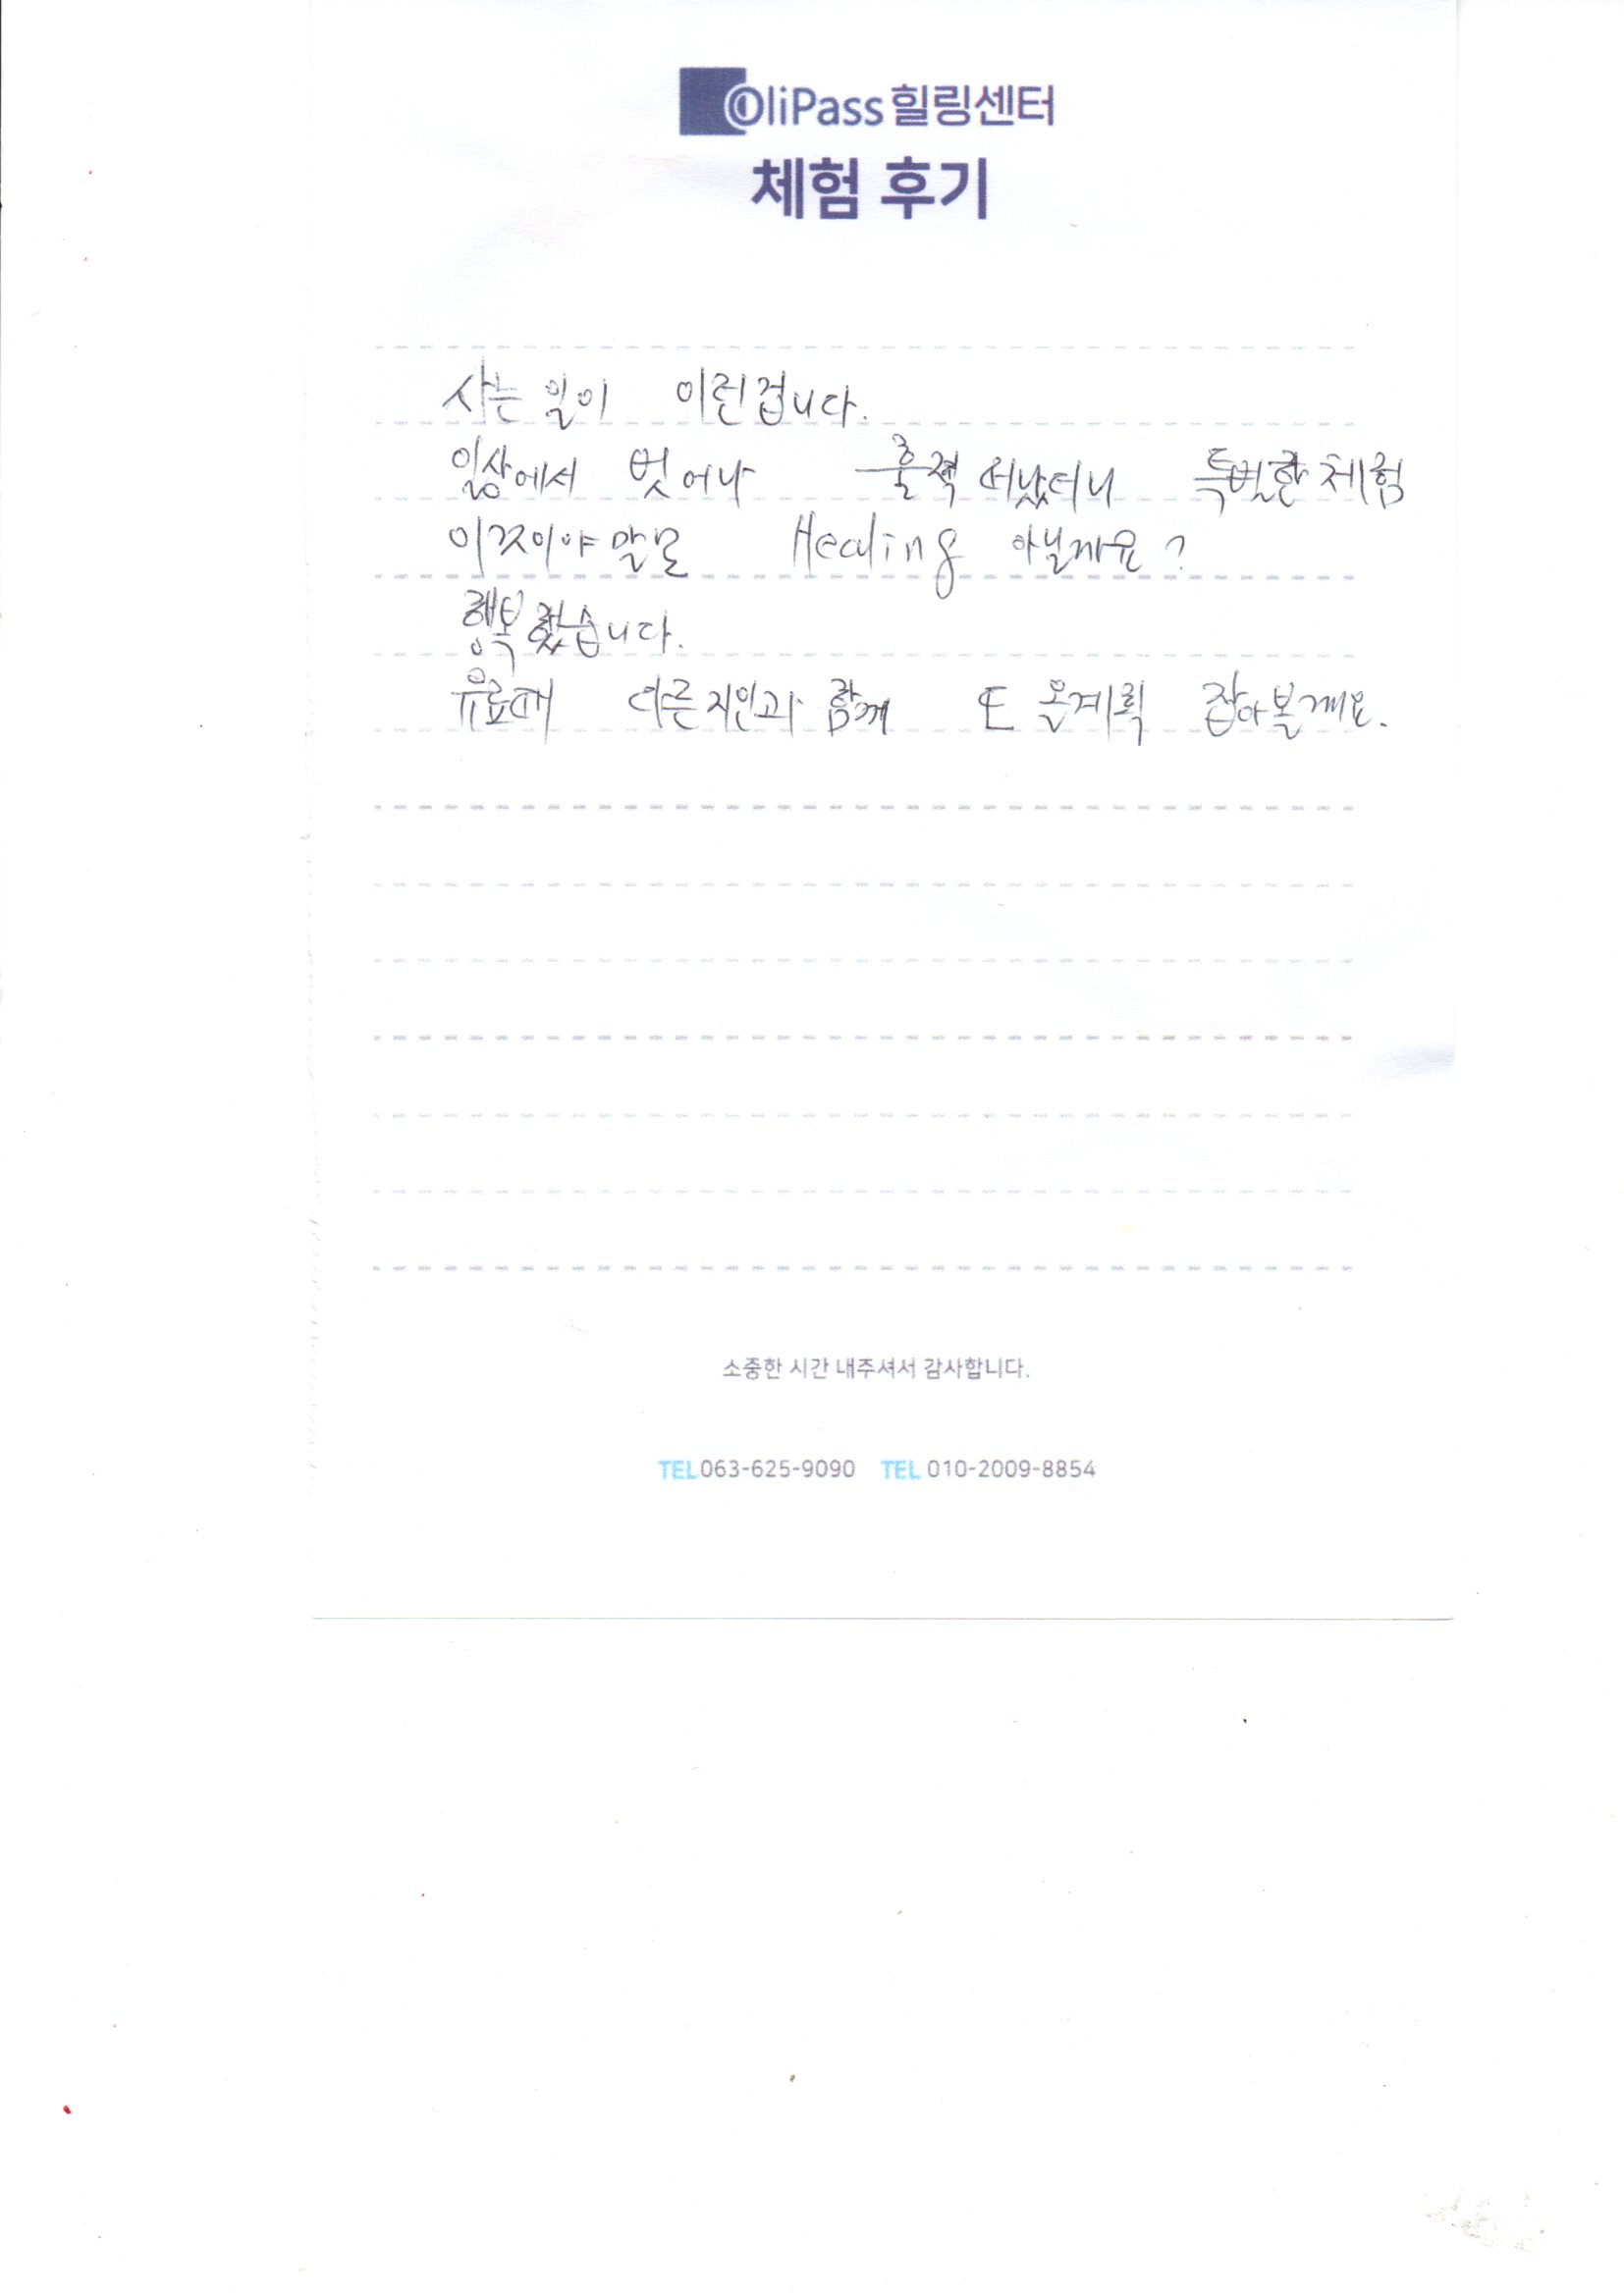 OliPass 힐링센터
체험 후기
사는 일이 이런겁니다.
일상에서 벗어나 훌쩍 떠났더니 특별한 체험
이것이야 말로 Healing 아닐까요?
행복했습니다.
유료때 다른 지인과 함께 또 올계획 잡아볼게요.
소중한 시간 내주셔서 감사합니다.
TEL 063-625-9090 TEL 010-2009-8854